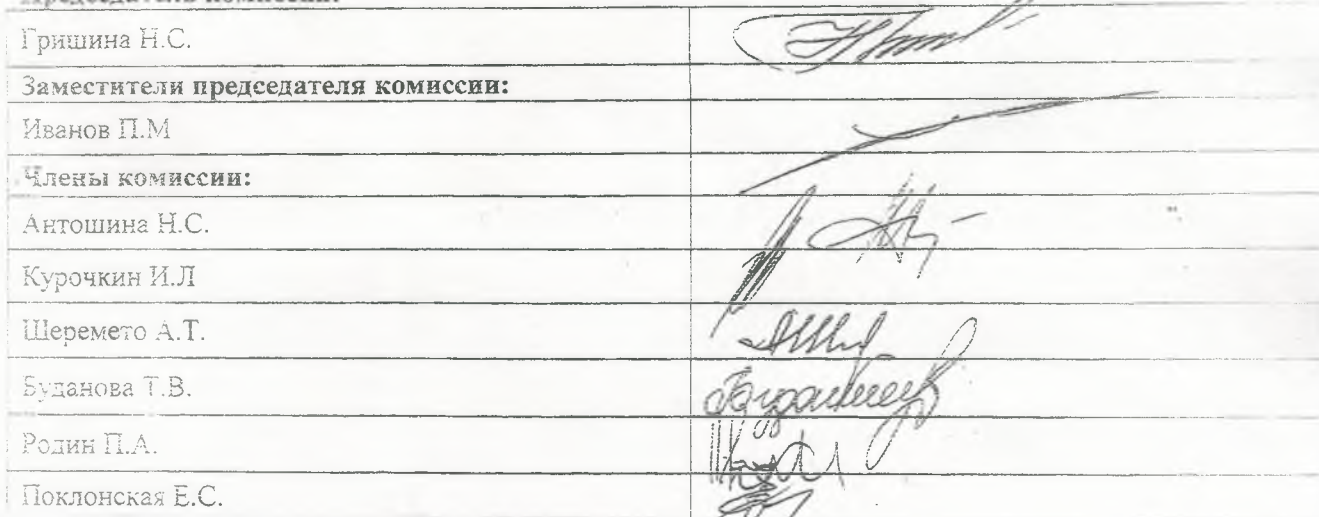 Председатель комиссии:
Гришина Н.С.
Заместители председателя комиссии:
Иванов П.М
Члены комиссии:
Антошина Н.С.
Курочкин И.Л
Шеремето А.Т.
Буданова Т.В.
Родин П.А.
Поклонская Е.С.